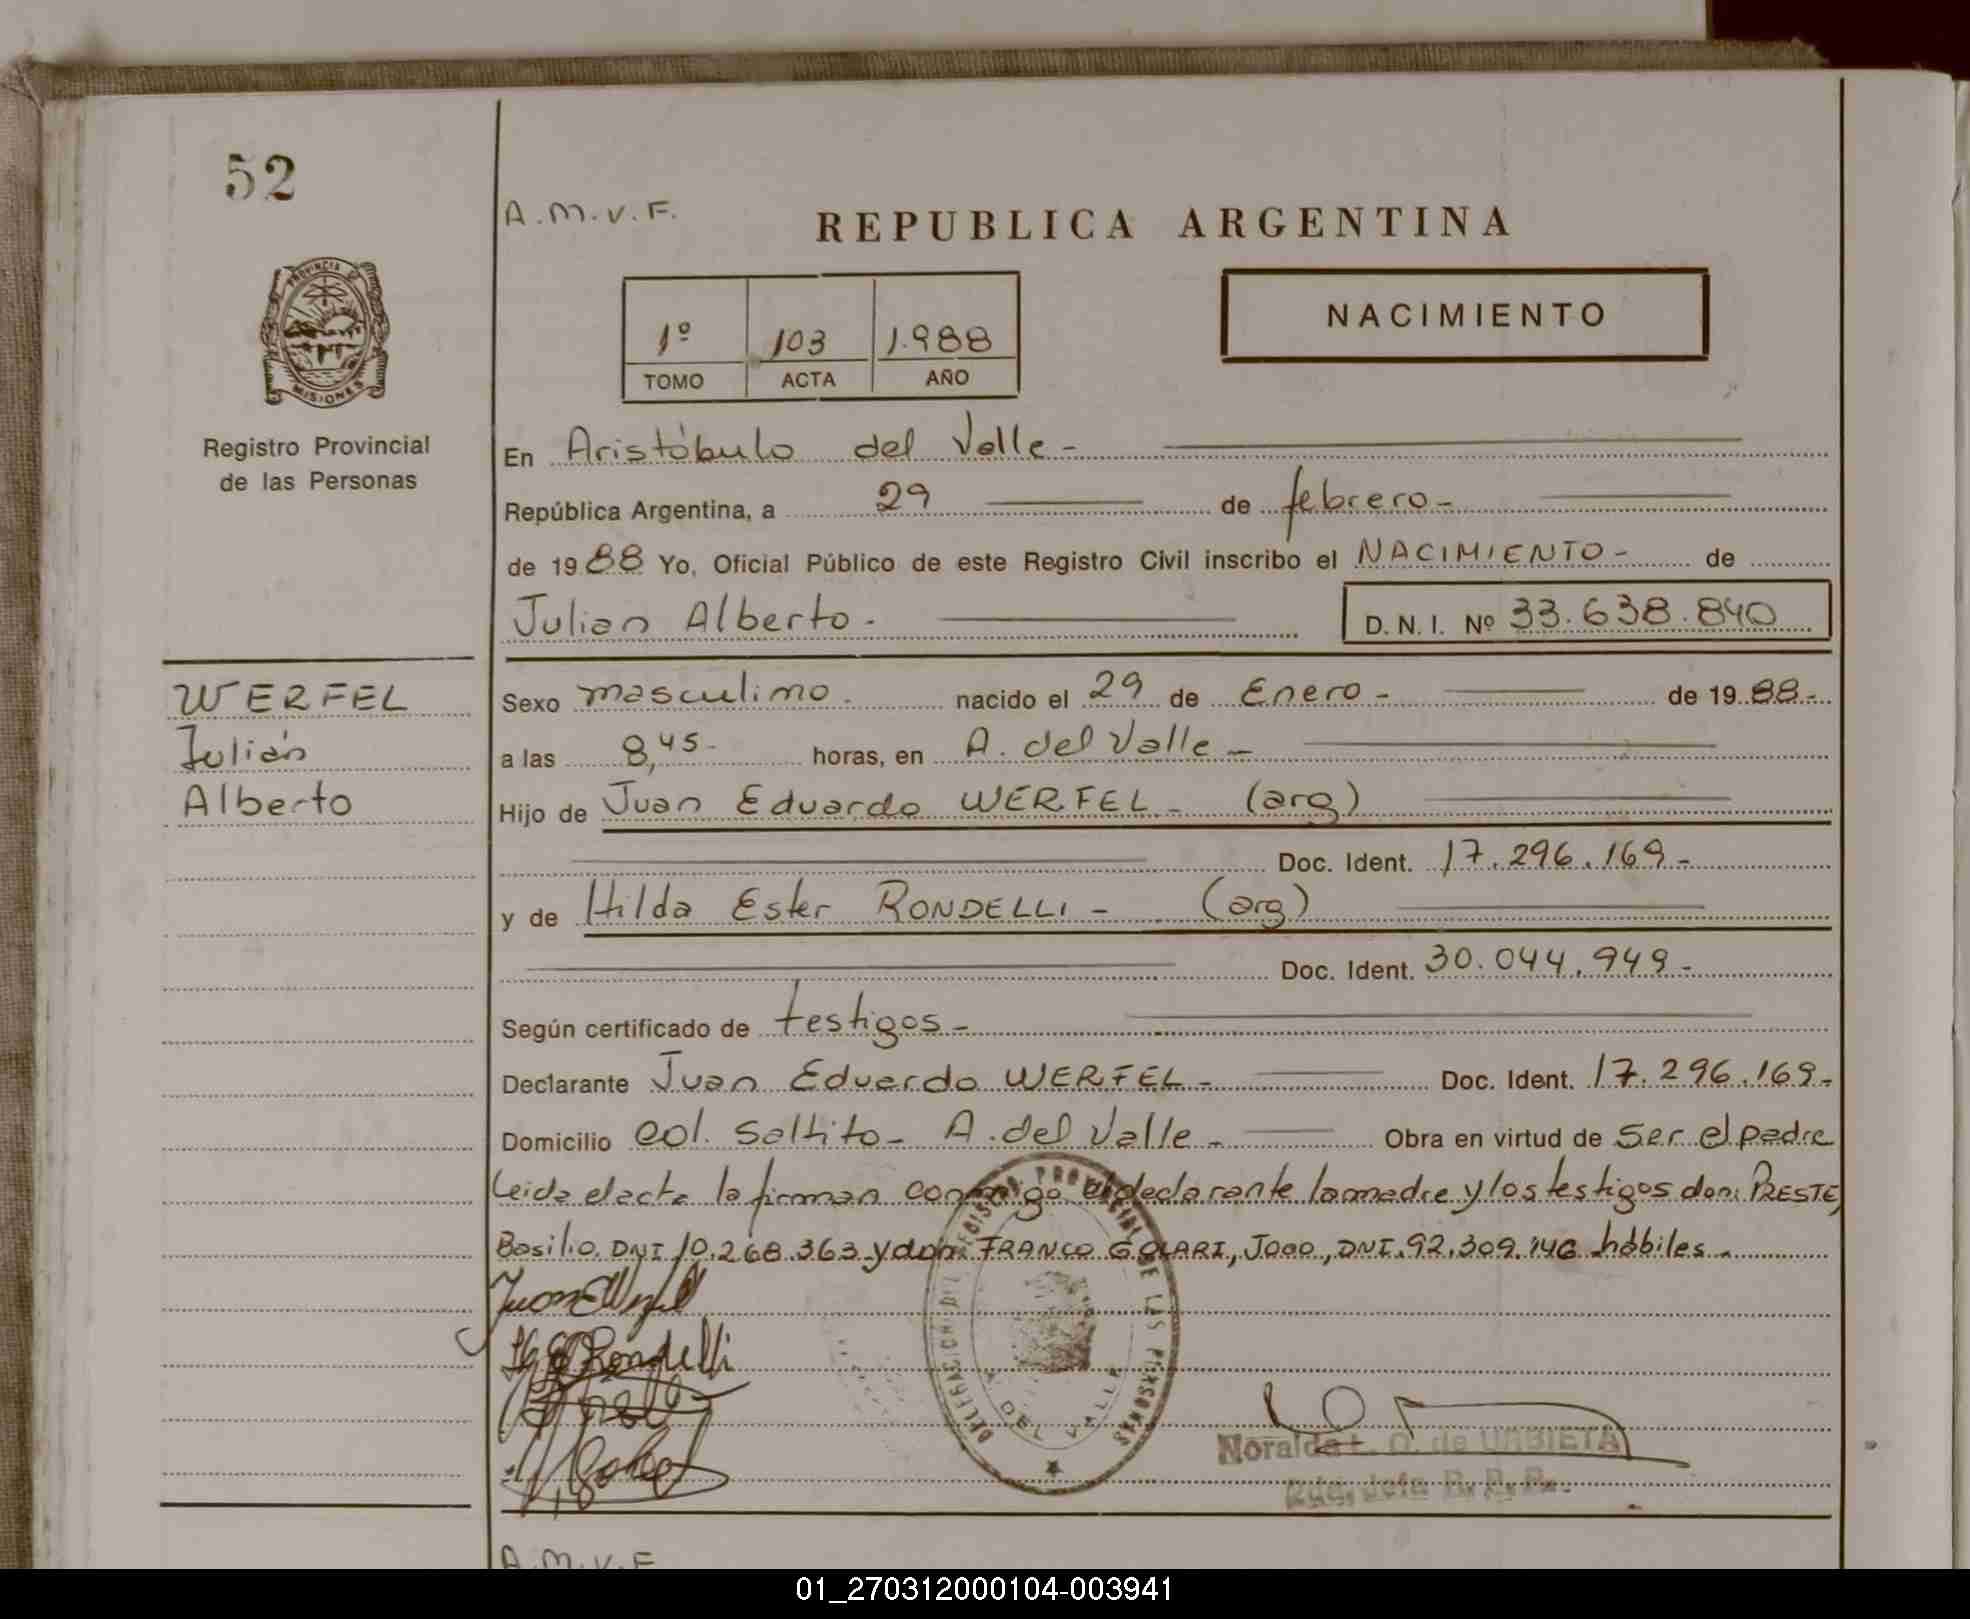 52
A.M.V.F.
REPUBLICA ARGENTINA
1º 103 1.988
TOMO ACTA AÑO
NACIMIENTO
PROVINCIA DE
MISIONES
Registro Provincial
de las Personas
En Aristóbulo del Valle -
República Argentina, a 29 de febrero -
de 19 88 Yo, Oficial Público de este Registro Civil inscribo el NACIMIENTO - de
Julian Alberto - D.N.I. Nº 33.638.840
WERFEL
Julián
Alberto
Sexo masculino. nacido el 29 de Enero - de 19 88.-
a las 8,45- horas, en A. del Valle -
Hijo de Juan Eduardo WERFEL - (arg)
Doc. Ident. 17.296.169 -
y de Hilda Ester RONDELLI - (arg)
Doc. Ident. 30.044.949 -
Según certificado de testigos -
Declarante Juan Eduardo WERFEL - Doc. Ident. 17.296.169 -
Domicilio col. Saltito - A. del Valle - Obra en virtud de Ser el padre
Leida el acta la firman conmigo el declarante la madre y los testigos don: PRESTE,
Basilio DNI 10.268.363 y don: FRANCO GOLARI, Joao, DNI. 92.309.146 hábiles -
Rondelli
DELEGACION DEL REGISTRO PROVINCIAL DE LAS PERSONAS
A. DEL VALLE
Noralda L. O. de URBIETA
Jefa R. P. P.
A.M.V.F
01_270312000104-003941